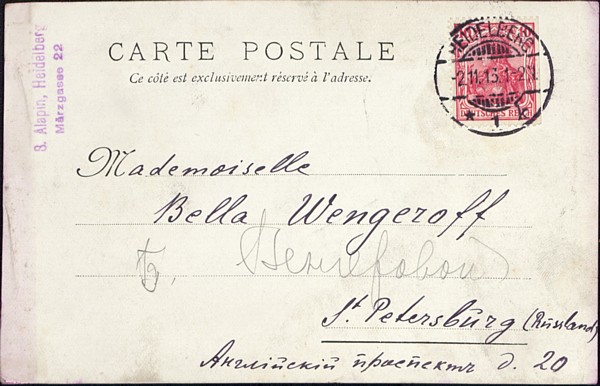 S. Alapin, Heidelberg
Märzgasse 22
CARTE POSTALE
Ce côté est exclusivement réservé à l'adresse.
HEIDELBERG
-2.11.13.1-2N.
* 1 k
DEUTSCHES REICH
Mademoiselle
Bella Wengeroff
Б. Венгеровой
St. Petersburg (Russland)
Англійскій проспектъ д. 20